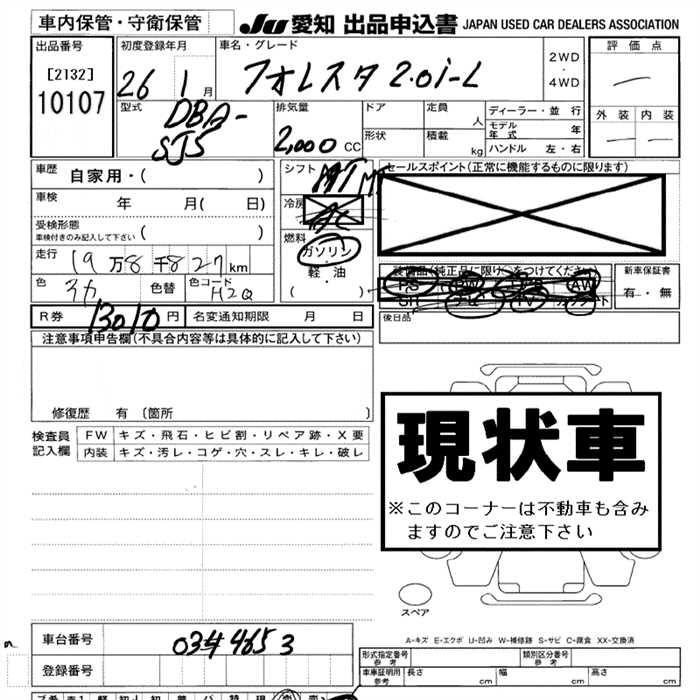 車内保管・守衛保管 JU 愛知 出品申込書 JAPAN USED CAR DEALERS ASSOCIATION
出品番号
[2132]
10107
初度登録年月
26 1 月
車名・グレード
フォレスタ 2.0i-L
2WD
・
4WD
評価点
外装 内装
型式
DBA-
SJ5
排気量
2,000 CC
ドア
形状
定員 人
積載 kg
ディーラー・並行
モデル年式 年
ハンドル 左・右
車歴
自家用・( )
車検
年 月( 日)
受検形態
車検付きのみ記入して下さい ( )
走行
19万8千827km
色
色替
色コード
H2Q
シフト
冷房
燃料
ガソリン
・
軽・油
・
( )
セールスポイント(正常に機能するものに限ります)
新車保証書
有・無
後日品
R券 13010 円
名変通知期限 月 日
注意事項申告欄(不具合内容等は具体的に記入して下さい)
修復歴 有 〔箇所 〕
検査員
記入欄
FW キズ・飛石・ヒビ割・リペア跡・X要
内装 キズ・汚レ・コゲ・穴・スレ・キレ・破レ
現状車
※このコーナーは不動車も含み
ますのでご注意下さい
スペア
A-キズ E-エクボ U-凹み W-補修跡 S-サビ C-腐食 XX-交換済
車台番号
0344653
登録番号
形式指定番号
参考
類別区分番号
参考
車庫証明用
参考
長さ cm
幅 cm
高さ cm